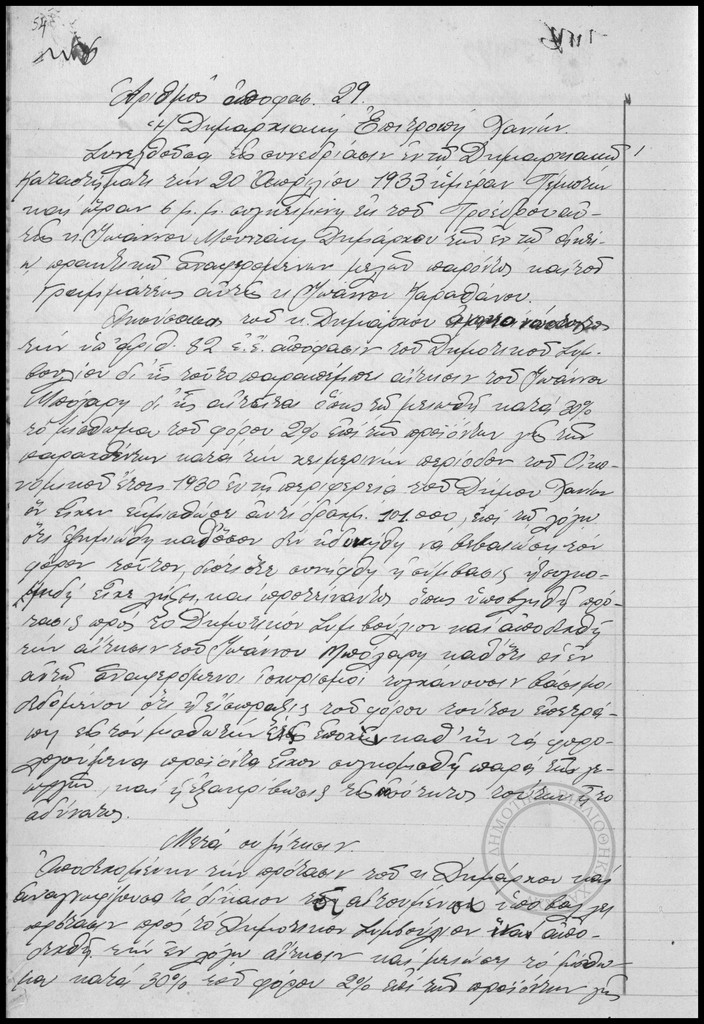 54
Ἀριθμὸς ἀποφάσ. 29.
Ἡ Δημαρχιακὴ Ἐπιτροπὴ Χανίων.
Συνελθοῦσα εἰς συνεδρίασιν ἐν τῷ Δημαρχιακῷ
καταστήματι τὴν 20 Ἀπριλίου 1933 ἡμέραν Πέμπτην
καὶ ὥραν 6 μ.μ. συγκειμένη ἐκ τοῦ Προέδρου αὐ-
τῆς κ. Ἰωάννου Μουντάκη Δημάρχου τῶν ἐν τῷ
πρακτικῷ ἀναφερομένων μελῶν παρόντος καὶ τοῦ
Γραμματέως αὐτῆς κ. Ἰωάννου
Ἀκούσασα τοῦ κ. Δημάρχου
τὴν ὑπ' ἀριθ. 82 ἐ.ἔ. ἀπόφασιν τοῦ Δημοτικοῦ Συμ-
βουλίου δι' ἧς τοῦτο παραπέμπει αἴτησιν τοῦ Ἰωάννου
Μπόλαρη δι' ἧς αἰτεῖται ὅπως τῷ μειωθῇ κατὰ 30%
τὸ μίσθωμα τοῦ φόρου 2% ἐπὶ τῶν προϊόντων γῆς τῶν
παραχθέντων κατὰ τὴν χειμερινὴν περίοδον τοῦ Οἰκο-
νομικοῦ ἔτους 1930 ἐν τῇ περιφερείᾳ τοῦ Δήμου Χανίων
ὃν εἶχεν ἐκμισθώσει ἀντὶ δραχμ. 101.000, ἐπὶ τῷ λόγῳ
ὅτι ἐζημιώθη καθ' ὅσον δὲν ἠδυνήθη νὰ βεβαιώσῃ τὸν
φόρον τοῦτον, διότι ὅτε συνήφθη ἡ σύμβασις ἡ συγκο-
μιδὴ εἶχε λήξει, καὶ προτείναντος ὅπως ὑποβληθῇ πρό-
τασις πρὸς τὸ Δημοτικὸν Συμβούλιον καὶ ἀποδεχθῇ
τὴν αἴτησιν τοῦ Ἰωάννου Μπόλαρη καθότι οἱ ἐν
αὐτῇ ἀναφερόμενοι ἰσχυρισμοὶ τυγχάνουσιν βάσιμοι
δεδομένου ὅτι ἡ εἴσπραξις τοῦ φόρου τούτου ἐπετρά-
πη εἰς τὸν μισθωτὴν εἰς ἐποχὴν καθ' ἣν τὰ φορο-
λογούμενα προϊόντα εἶχον συγκομισθῆ παρὰ τῶν γε-
ωργῶν, καὶ ἡ ἐξακρίβωσις τῆς ποσότητος τούτων ἦτο
ἀδύνατος.
Μετὰ συζήτησιν.
Ἀποδεχομένη τὴν πρότασιν τοῦ κ. Δημάρχου καὶ
ἀναγνωρίζουσα τὸ δίκαιον τῆς αἰτουμένης ὑποβάλλει
πρότασιν πρὸς τὸ Δημοτικὸν Συμβούλιον ἵνα ἀπο-
δεχθῇ τὴν ἐν λόγῳ αἴτησιν καὶ μειώσῃ τὸ μίσθω-
μα κατὰ 30% τοῦ φόρου 2% ἐπὶ τῶν προϊόντων γῆς